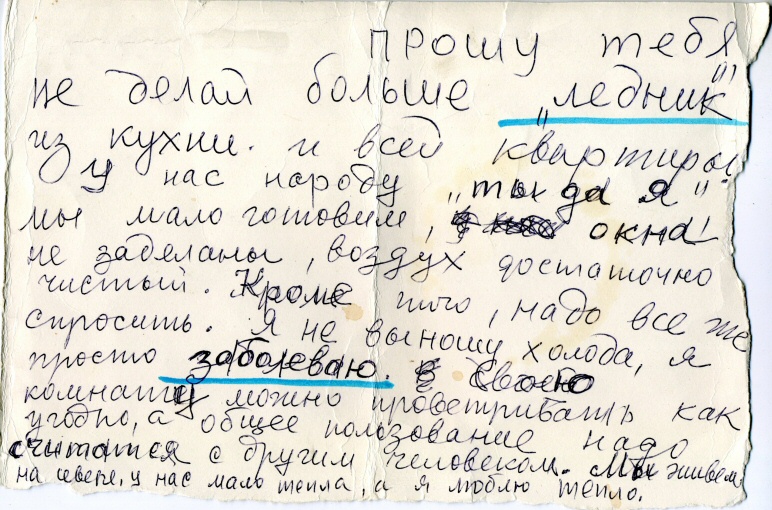 прошу тебя
не делай больше „ледник"
из кухни. и всей квартиры.
У нас народу „ты да я"
мы мало готовим, окна
не заделаны, воздух достаточно
чистый. Кроме того, надо все же
спросить. Я не выношу холода, я
просто заболеваю. Свою
комнату можно проветривать как
угодно, а общее пользование надо
считатся с другим человеком. Мы живем
на севере, у нас мало тепла, а я люблю тепло.